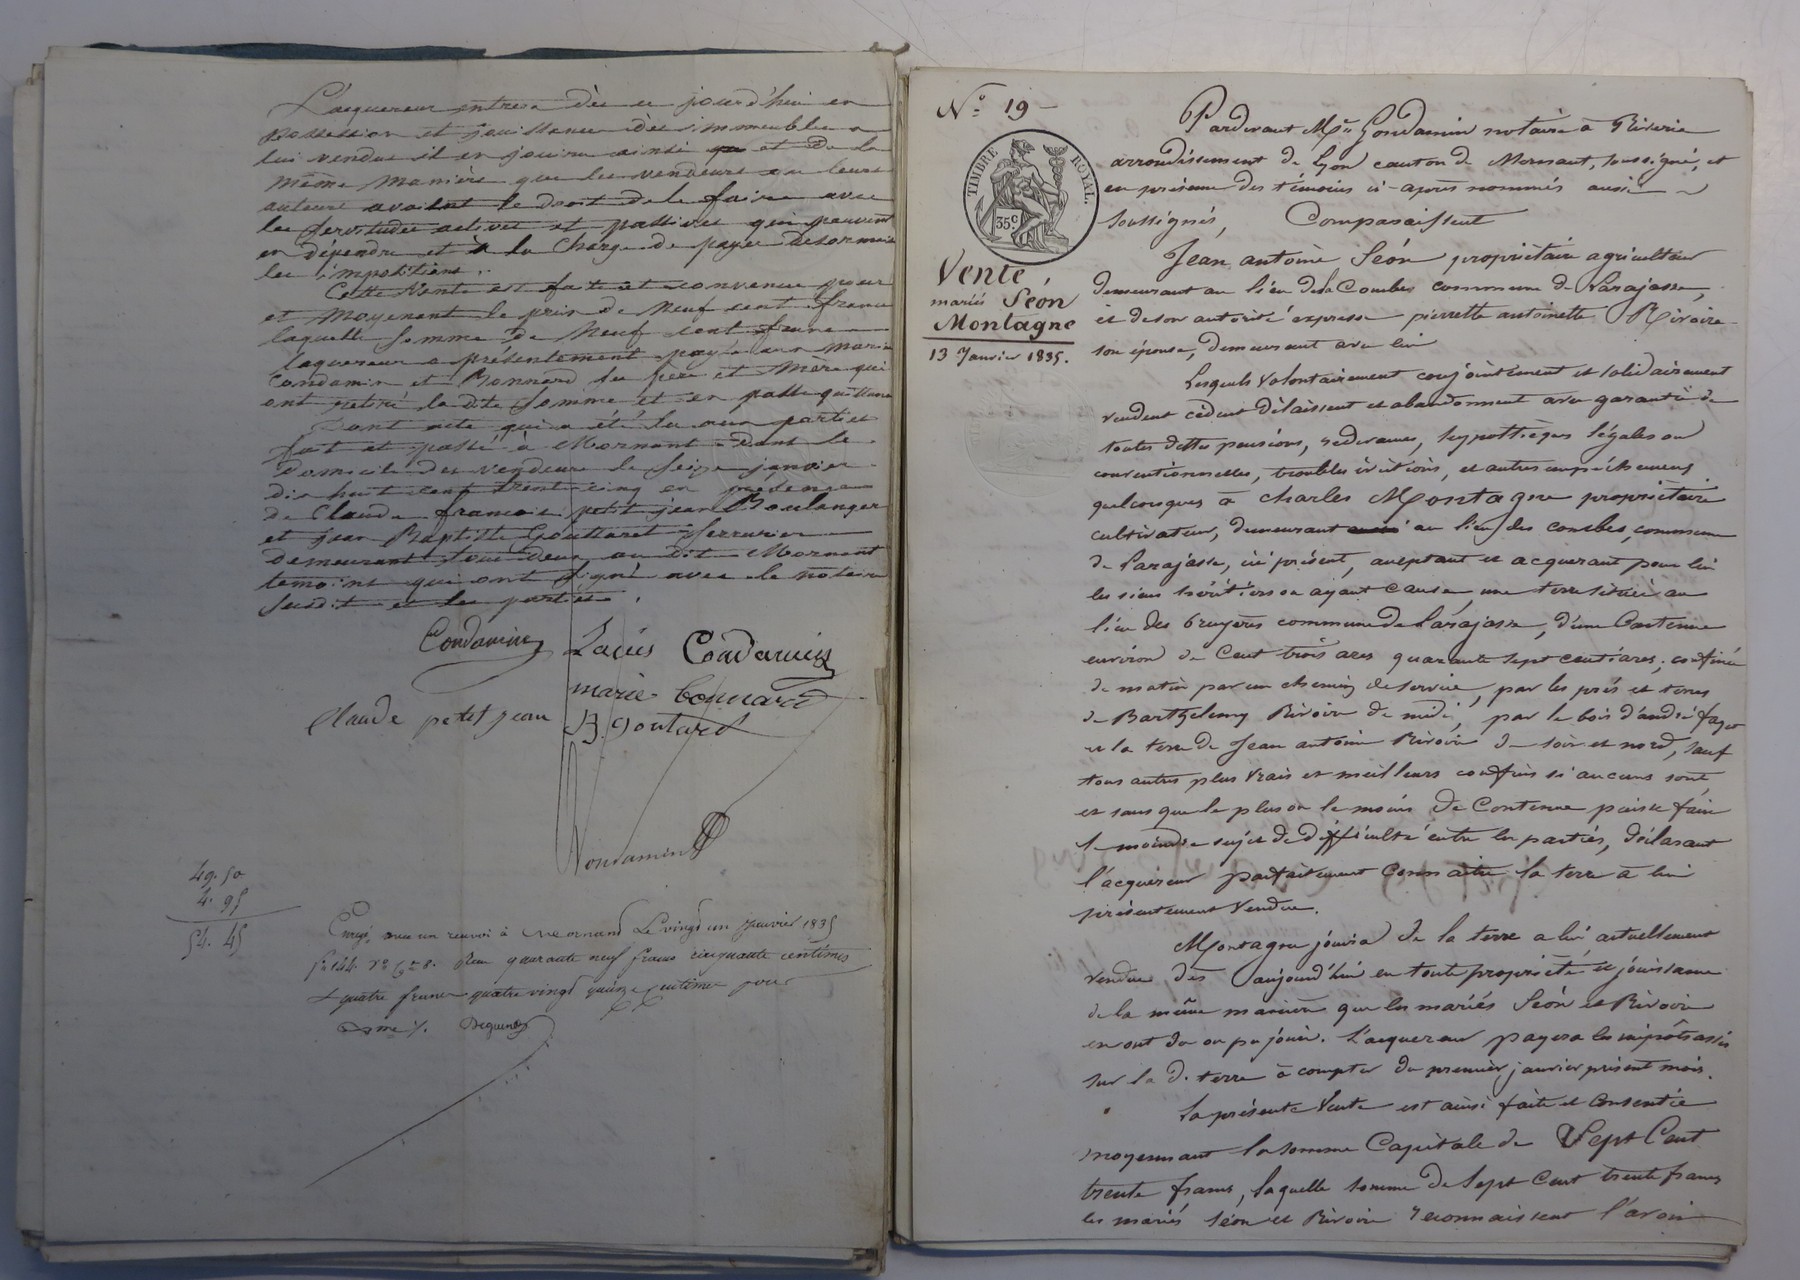 L'acquereur entrera dès ce jourd'hui en
possession et jouissance des immeubles a
lui vendus il en jouira ainsi que et de la
même manière que les vendeurs ou leurs
auteurs avaint le droit de le faire avec
les servitudes actives et passives qui peuvent
en dépendre et à la charge de payer desormais
les impositions.
Cette Vente est faite et convenue pour
et moyenent le prix de Neuf cent francs
laquelle somme de Neuf cent francs
laquereur a présentement payée aux mariés
Condamin et Bonnard ses père et Mère qui
ont retiré la dite somme et en passe quittance
Dont acte qui a été lu aux parties
fait et passé à Mornant dans le
domicile des vendeurs le seize janvier
dix huit cent trent cinq en présence
de Claude françois petit jean Boulanger
et jean Baptiste Gouttaret serrurier
demeurant tous deux au dit Mornant
temoins qui ont signé avec le notaire
susdit et les parties.
Condamin Louis Condamin
marie bonnard
Claude petit jean B. Goutaret
Condamin
49. 50
4. 95
54. 45
Enregé, avec un renvoi à Mornand Le vingt un Janvier 1835
fo 144. Ro Reçu quarante neuf francs cinquante centimes
& quatre francs quatre vingt quinze centimes pour
Dxme /.
No. 19
TIMBRE ROYAL.
35c
Vente
mariés Séon
Montagne
13 Janvier 1835.
Pardevant Me. Condamin notaire à Riverie
arrondissement de Lyon canton de Mornant, soussigné, et
en présence des témoins ci-après nommés aussi
soussignés, Comparaissent
Jean antoine Séon propriétaire agriculteur
demeurant au lieu des Combes commune de Larajasse,
et de son autorité expresse pierrette antoinette Rivoire
son épouse, demeurant avec lui
Lesquels volontairement conjointement et solidairement
vendent cèdent délaissent et abandonnent avec garantie de
toutes dettes pensions, redevances, hypothèques légales ou
conventionnelles, troubles évictions, et autres empêchemens
quelconques à Charles Montagne propriétaire
cultivateur, demeurant au lieu des combes, commune
de Larajasse, ici présent, aceptant et acquerant pour lui
les siens héritiers ou ayant cause, une terre située au
lieu des bruyeres commune de Larajasse, d'une Contenue
environ de Cent trois ares quarante sept centiares, confinée
de matin par un chemin de service, par les prés et terres
de Barthelemy Rivoire de midi, par le bois d'andré fayet
et la terre de Jean antoine Rivoire de soir et nord, sauf
tous autres plus vrais et meilleurs confins si aucuns sont
et sans que le plus ou le moins de Contenue puisse faire
le moindre sujet de difficulté entre les parties, déclarant
l'acquereur parfaitement Connaitre la terre à lui
présentement vendue.
Montagne jouira de la terre a lui actuellement
vendue dès aujourd'hui en toute propriété et jouissance
de la même manière que les mariés Séon et Rivoire
en ont du ou pu jouir. L'acquereur payera les impôts assis
sur la d. terre à compter du premier janvier présent mois.
La présente Vente est ainsi faite et Consentie
moyennant la somme Capitale de Sept Cent
trente francs, laquelle somme de Sept Cent trente francs
les mariés Séon et Rivoire reconnaissent l'avoir